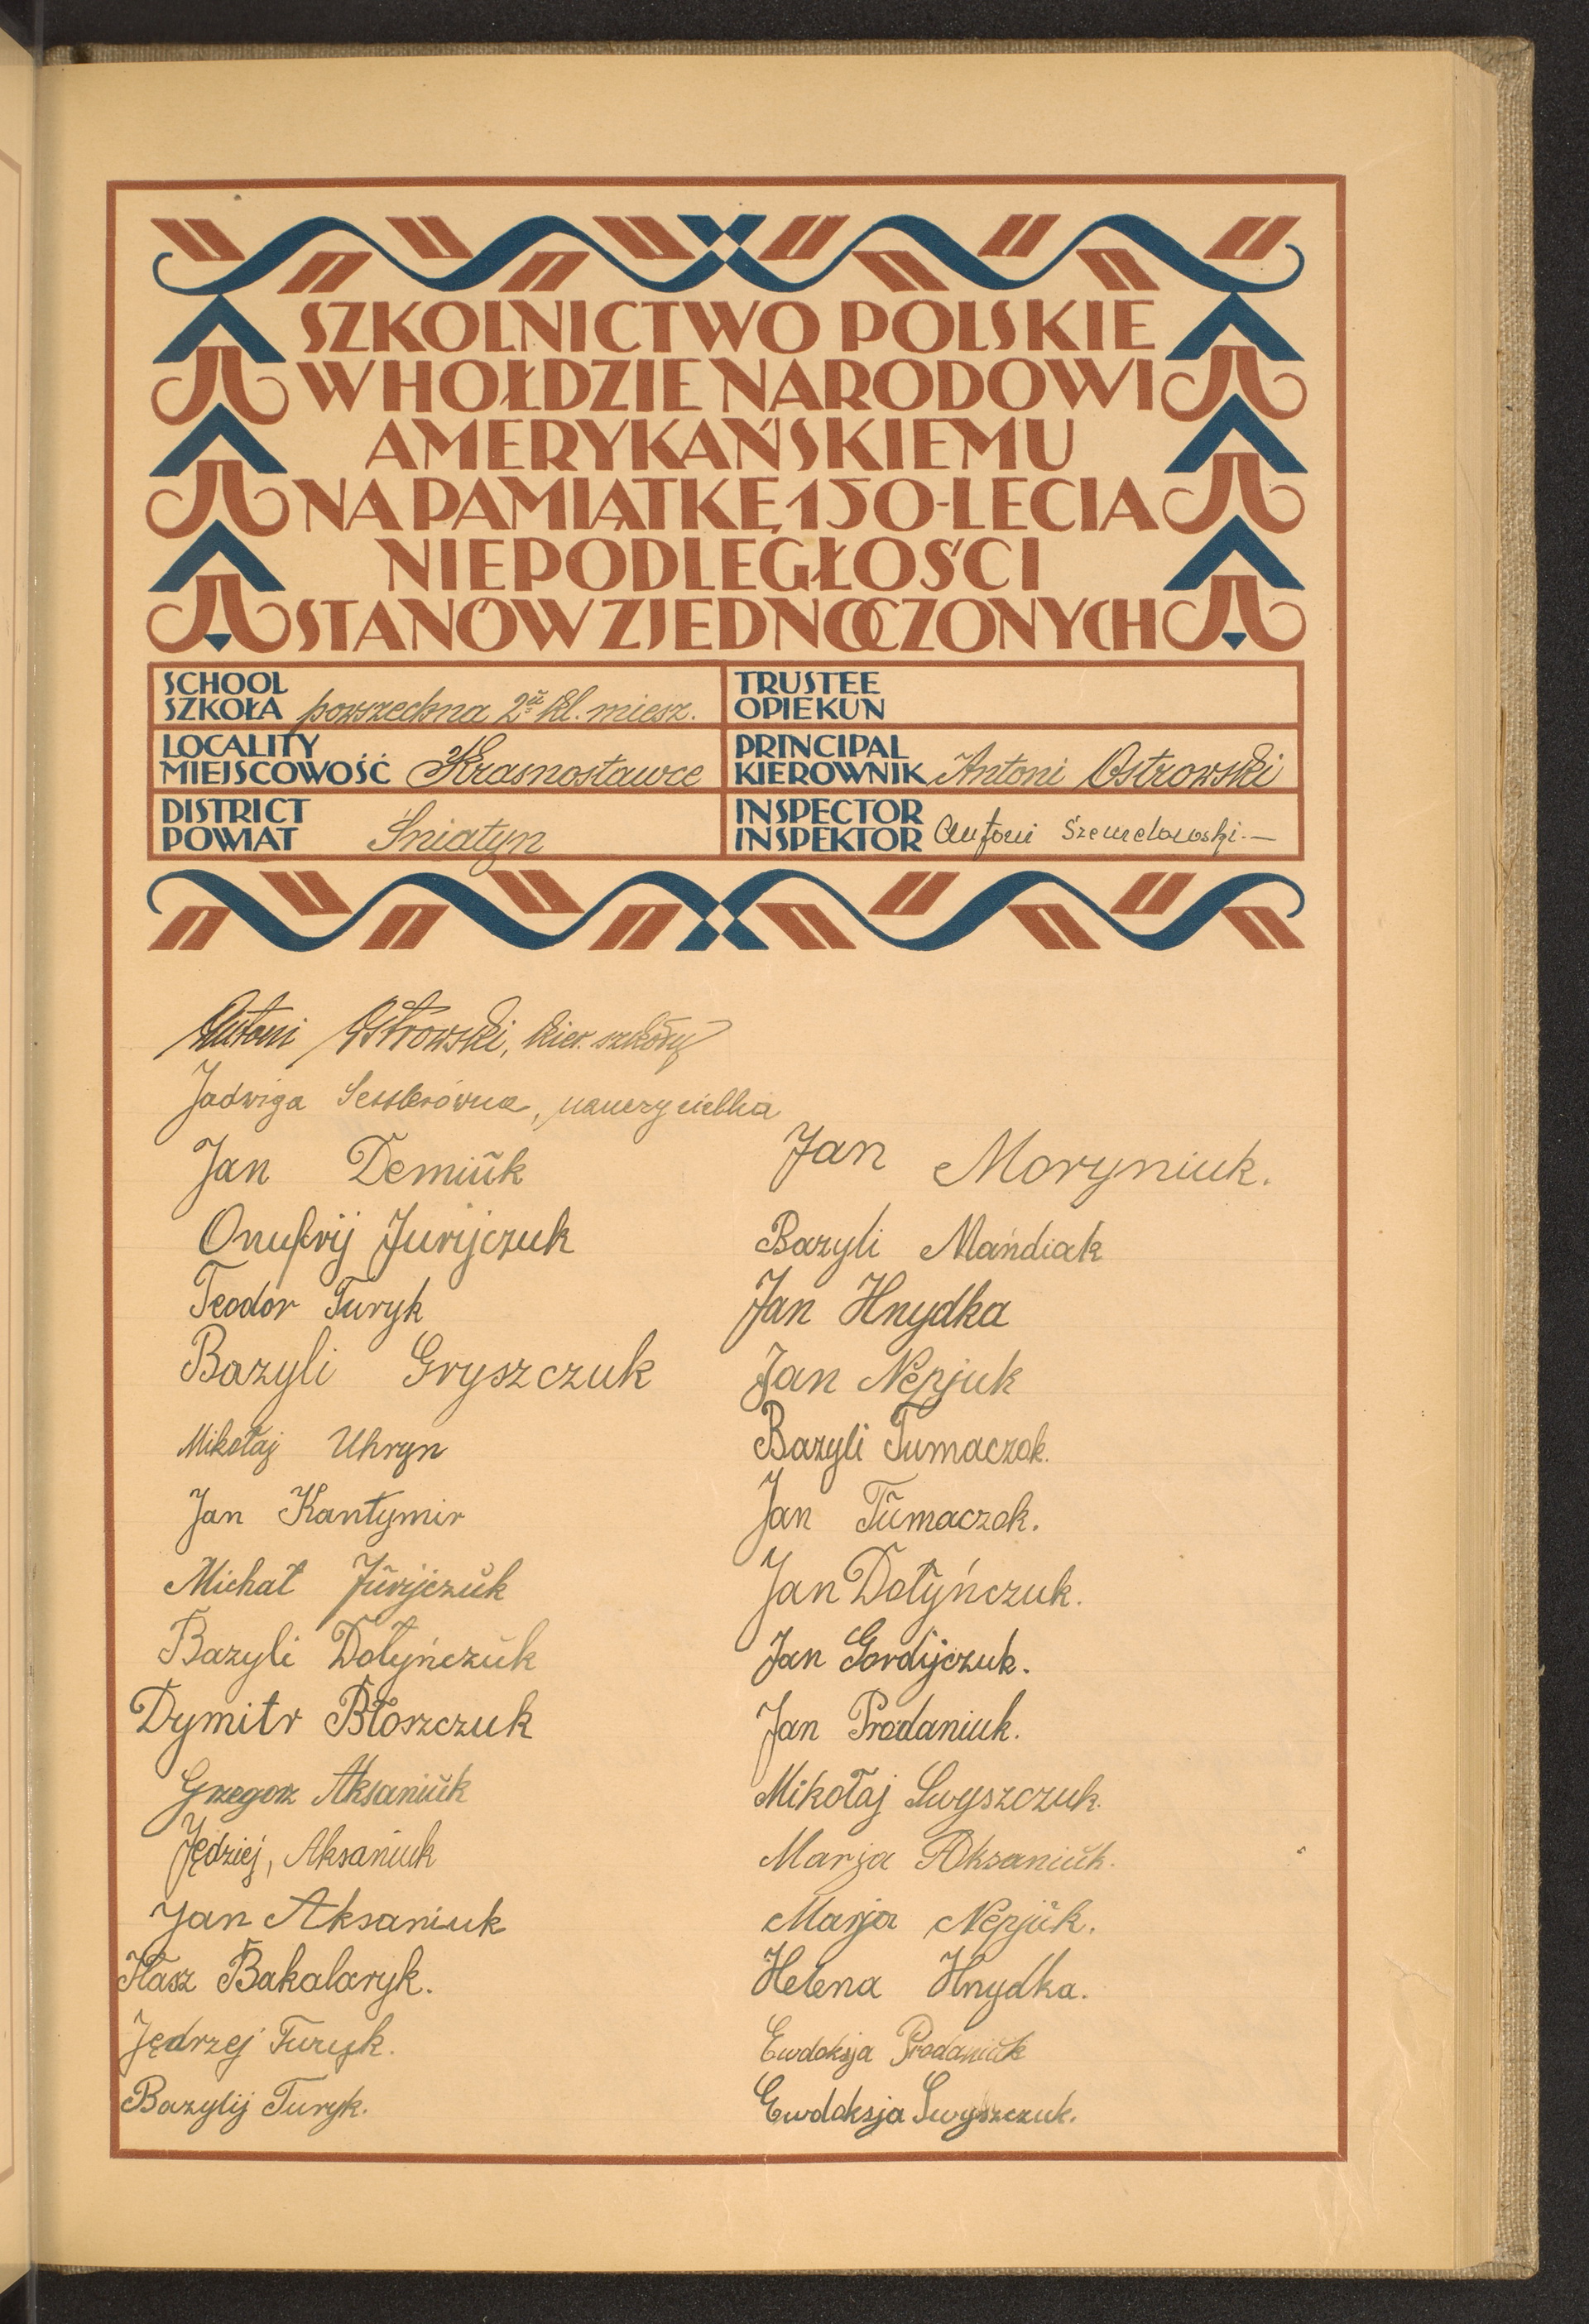 SZKOLNICTWO POLSKIE
W HOŁDZIE NARODOWI
AMERYKAŃSKIEMU
NA PAMIĄTKĘ 150-LECIA
NIEPODLEGŁOŚCI
STANÓW ZJEDNOCZONYCH
SCHOOL
SZKOŁA powszechna 2ů kl. miesz.
LOCALITY
MIEJSCOWOŚĆ Krasnostawce
DISTRICT
POWIAT Śniatyn
TRUSTEE
OPIEKUN
PRINCIPAL
KIEROWNIK Antoni Ostrowski
INSPECTOR
INSPEKTOR Antoni
Antoni Ostrowski, kier. szkoły
Jadwiga Sesslerówna, nauczycielka
Jan Demiŭk
Onufrij Jurijczuk
Teodor Turyk
Bazyli Gryszczuk
Mikołaj Uhryn
Jan Kantymir
Michał Jŭrijczŭk
Bazyli Dołyńczŭk
Dymitr Błoszczuk
Grzegorz Aksaniŭk
Jędziej, Aksaniuk
Jan Aksaniuk
Iłasz Bakalaryk.
Jędrzej Turyk.
Bazylij Turyk.
Jan Moryniuk.
Bazyli Mandiak
Jan Hnydka
Jan Nepjuk
Bazyli Tumaczok.
Jan Tŭmaczok.
Jan Dołyńczuk.
Jan Gordijczuk.
Jan Prodaniuk.
Mikołaj Swyszczuk.
Marja Aksaniŭk.
Marja Nepjŭk.
Helena Hnydka.
Ewdoksja Prodaniŭk
Ewdoksja Swyszczuk.